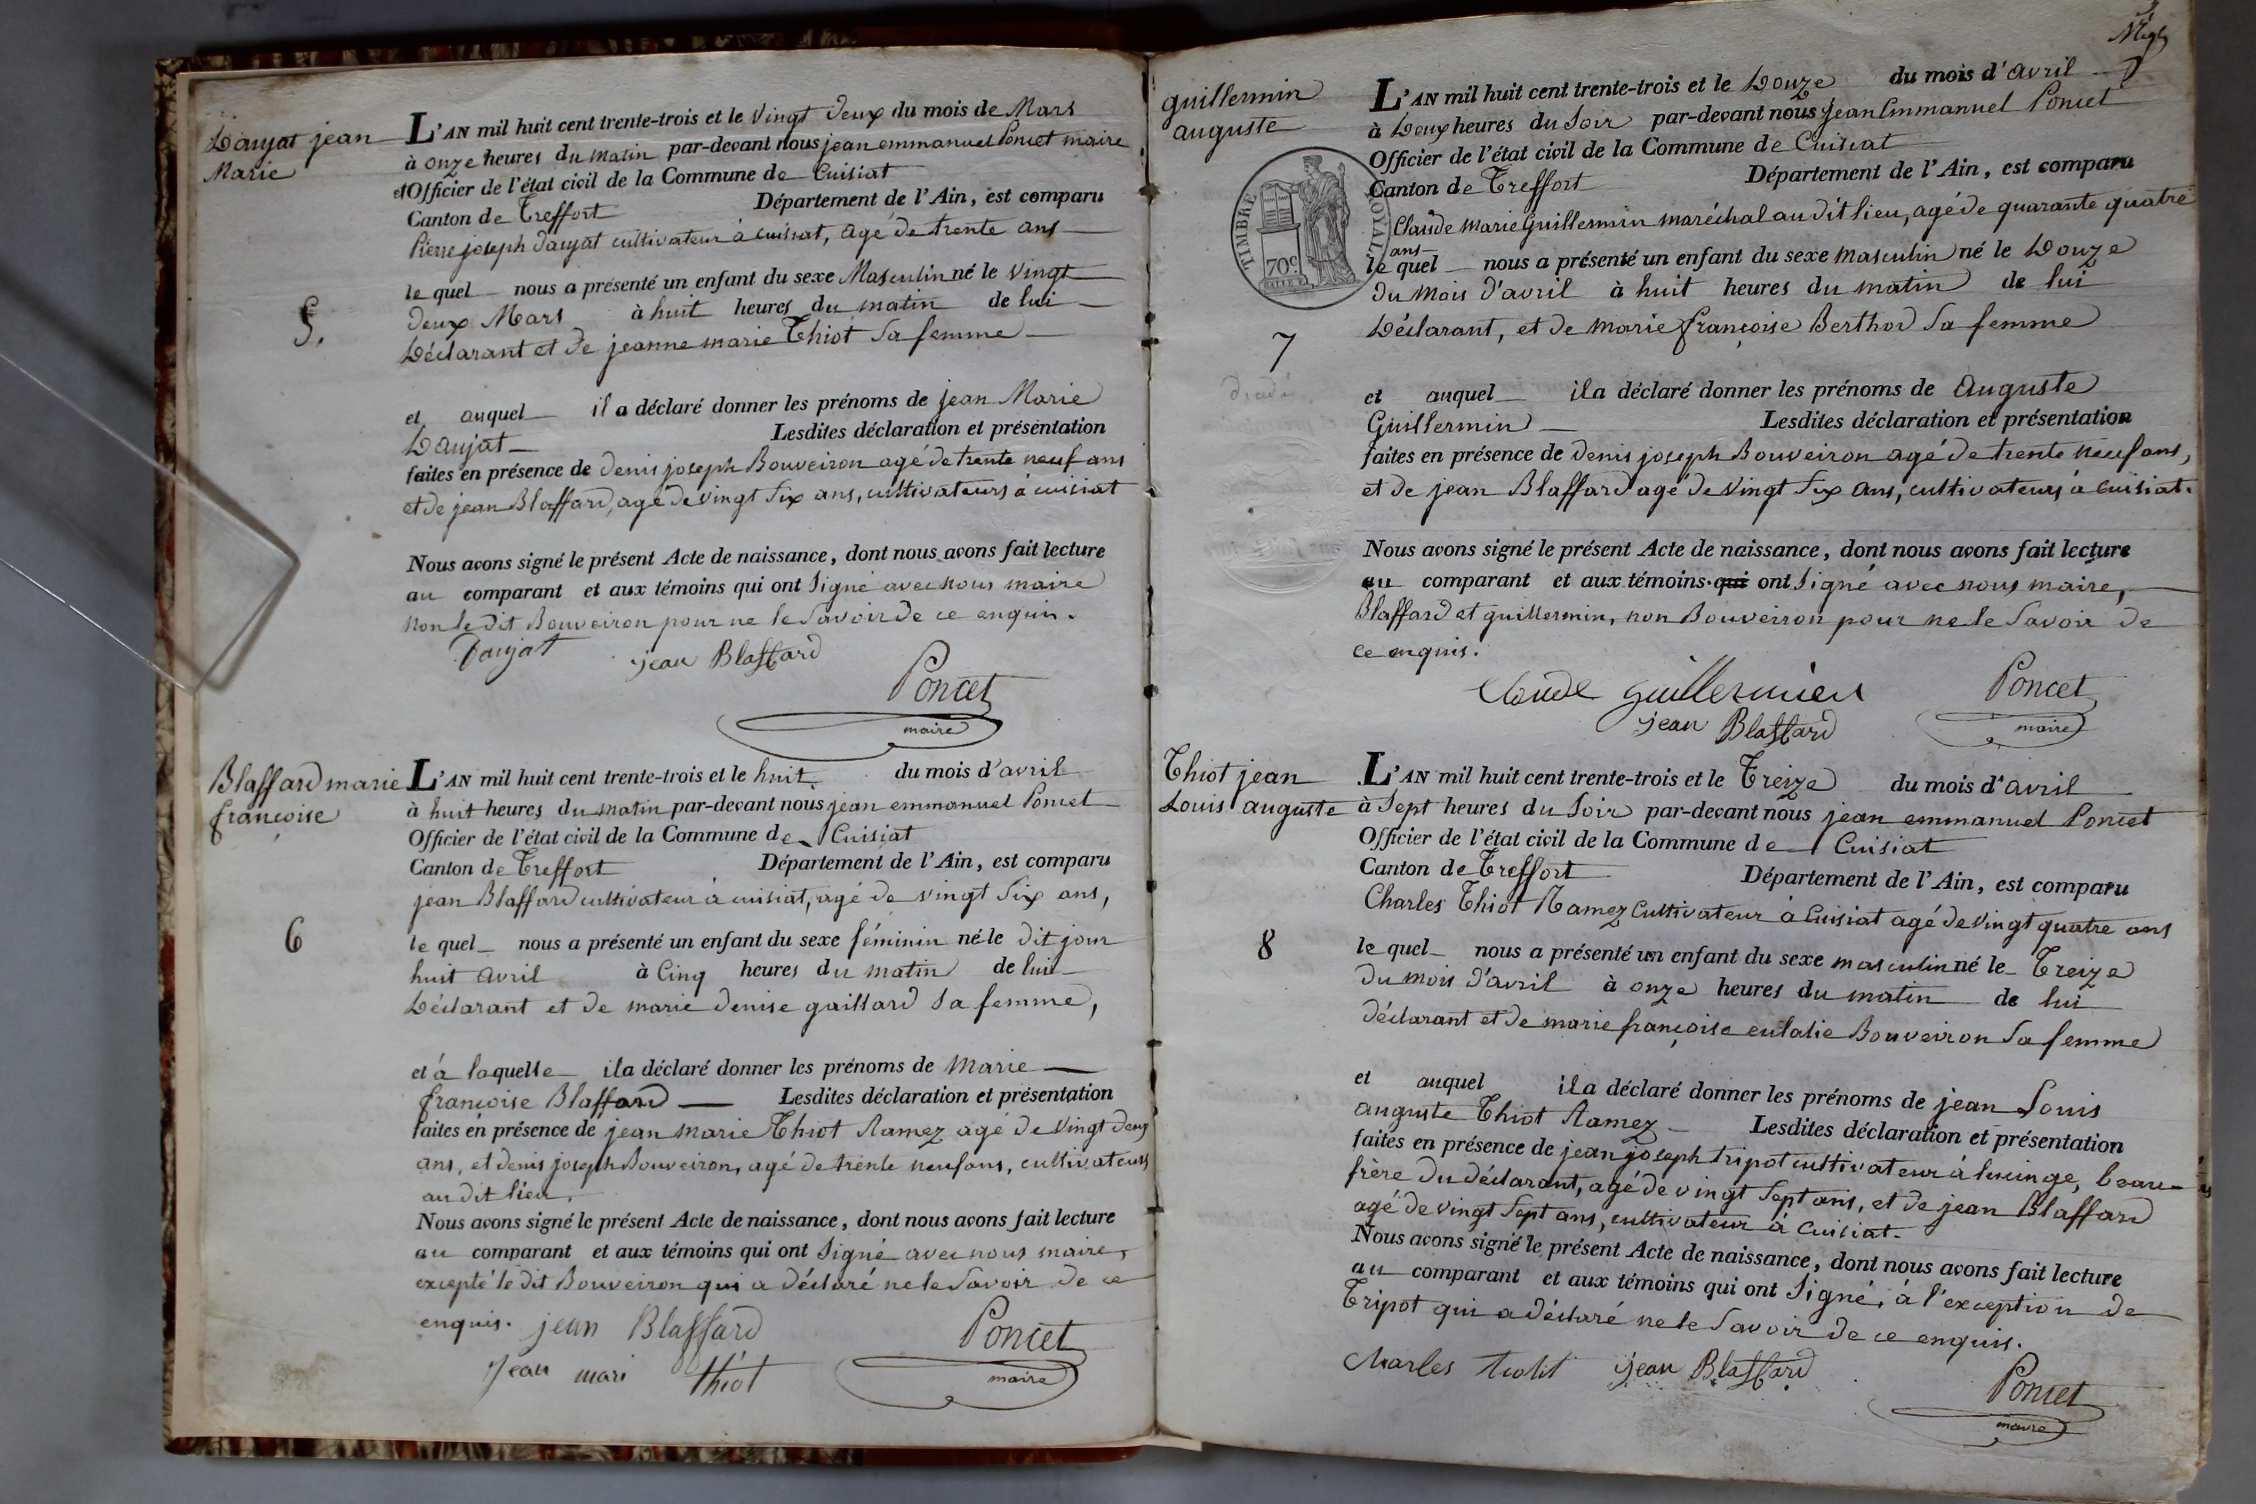 Daujat jean
Marie
L'AN mil huit cent trente-trois et le vingt deux du mois de Mars
à onze heures du matin par-devant nous jean emmanuel Poncet maire
et Officier de l'état civil de la Commune de Cuisiat
Canton de Treffort Département de l'Ain, est comparu
Pierre joseph daujat cultivateur à cuisiat, agé de trente ans
le quel nous a présenté un enfant du sexe Masculin né le vingt
5.
deux Mars à huit heures du matin de lui
Déclarant et de jeanne marie Thiot sa femme
et auquel il a déclaré donner les prénoms de jean Marie
Daujat Lesdites déclaration et présentation
faites en présence de denis joseph Bouveiron agé de trente neuf ans
et de jean Blaffard, agé de vingt six ans, cultivateurs à cuisiat
Nous avons signé le présent Acte de naissance, dont nous avons fait lecture
au comparant et aux témoins qui ont signé avec nous maire
non le dit Bouveiron pour ne le savoir de ce enquis.
Daujat jean Blaffard
Poncet
maire
Blaffard marie
françoise
L'AN mil huit cent trente-trois et le huit du mois d'avril
à huit heures du matin par-devant nous jean emmanuel Poncet
Officier de l'état civil de la Commune de Cuisiat
Canton de Treffort Département de l'Ain, est comparu
jean Blaffard cultivateur à cuisiat, agé de vingt six ans,
6
le quel nous a présenté un enfant du sexe féminin né le dit jour
huit avril à Cinq heures du matin de lui
Déclarant et de marie denise gaillard sa femme,
et à laquelle il a déclaré donner les prénoms de Marie
françoise Blaffard Lesdites déclaration et présentation
faites en présence de jean marie Thiot Ramez agé de vingt deux
ans, et denis joseph Bouveiron, agé de trente neuf ans, cultivateurs
au dit lieu.
Nous avons signé le présent Acte de naissance, dont nous avons fait lecture
au comparant et aux témoins qui ont signé avec nous maire,
excepté le dit Bouveiron qui a déclaré ne le savoir de ce
enquis. jean Blaffard
Poncet
jean mari thiot
maire
guillermin
auguste
L'AN mil huit cent trente-trois et le Douze du mois d'avril
à Deux heures du soir par-devant nous Jean Emmanuel Poncet
Officier de l'état civil de la Commune de Cuisiat
Canton de Treffort Département de l'Ain, est comparu
Claude Marie Guillermin maréchal au dit lieu, agé de quarante quatre
ans
TIMBRE ROYAL
70c
le quel nous a présenté un enfant du sexe masculin né le Douze
du mois d'avril à huit heures du matin de lui
Déclarant, et de Marie françoise Berthod sa femme
7
et auquel il a déclaré donner les prénoms de Auguste
Guillermin Lesdites déclaration et présentation
faites en présence de denis joseph Bouveiron agé de trente neuf ans,
et de jean Blaffard agé de vingt six ans, cultivateurs à cuisiat.
Nous avons signé le présent Acte de naissance, dont nous avons fait lecture
au comparant et aux témoins. qui ont signé avec nous maire,
Blaffard et guillermin, non Bouveiron pour ne le savoir de
ce enquis.
Claude guillermin Poncet
jean Blaffard maire
Thiot jean
Louis auguste
L'AN mil huit cent trente-trois et le Treize du mois d'avril
à sept heures du soir par-devant nous jean emmanuel Poncet
Officier de l'état civil de la Commune de Cuisiat
Canton de Treffort Département de l'Ain, est comparu
Charles Thiot Ramez Cultivateur à Cuisiat agé de vingt quatre ans
8
le quel nous a présenté un enfant du sexe masculin né le Treize
du mois d'avril à onze heures du matin de lui
déclarant et de marie françoise eulalie Bouveiron sa femme
et auquel il a déclaré donner les prénoms de jean Louis
auguste Thiot Ramez Lesdites déclaration et présentation
faites en présence de jean joseph tripot cultivateur à lucinge, beau-
frère du déclarant, agé de vingt sept ans, et de jean Blaffard
agé de vingt sept ans, cultivateur à Cuisiat.
Nous avons signé le présent Acte de naissance, dont nous avons fait lecture
au comparant et aux témoins qui ont signé, à l'exception de
Tripot qui a déclaré ne le savoir de ce enquis.
Charles jean Blaffard
Poncet
maire